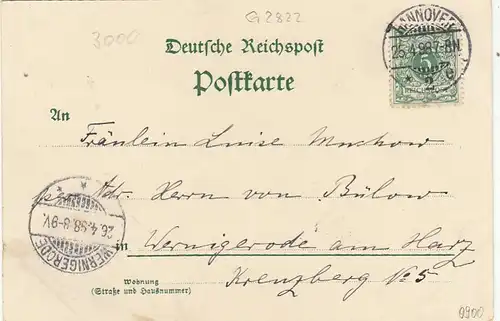 G2822
3000
Deutsche Reichspost
Postkarte
HANNOVER
25.4.98.7-8N.
* 2 c
5
An
Fräulein Luise Muchow
Adr. Herrn von Bülow
in Wernigerode am Harz
Kreuzberg No 5
WERNIGERODE
26.4.98.8-9V.
* *
Wohnung
(Straße und Hausnummer)
0900